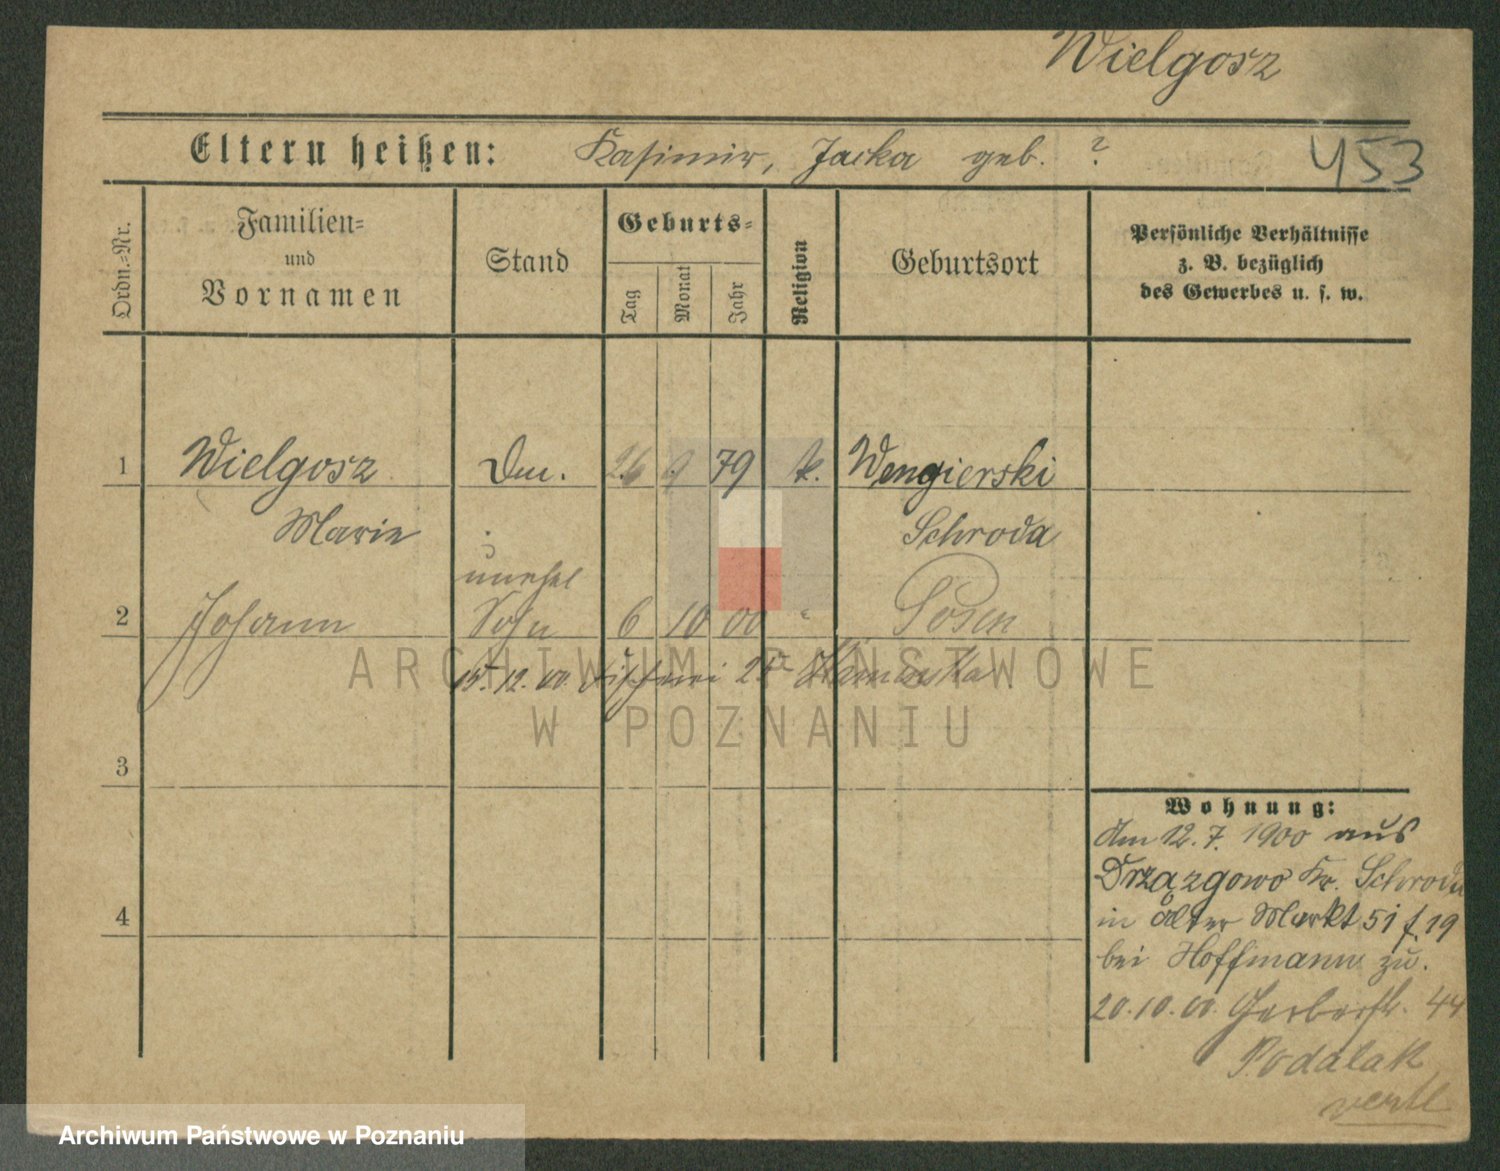 Wielgosz
Eltern heißen: Kasimir, Jacka geb. ?
453
Ordn.-Nr.
Familien-
und
Vornamen
Stand
Geburts-
Tag
Monat
Jahr
Religion
Geburtsort
Persönliche Verhältnisse
z. B. bezüglich
des Gewerbes u. s. w.
1 Wielgosz 26 9 79 k. Wengierski
Marie Schroda
unehel
2 Johann Sohn 6 10 00 " Posen
15. 12. 00
ARCHIWUM PAŃSTWOWE
W POZNANIU
3
Wohnung:
Am 12. 7. 1900 aus
Drzązgowo Kr. Schroda
4
in Alter Markt 51 f. 19
bei Hoffmann zu.
20. 10. 00. Gerberstr. 44
Podalak
Archiwum Państwowe w Poznaniu